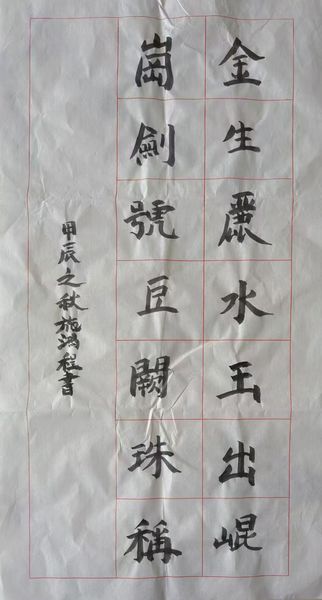 金生麗水玉出崐
崗劍號巨闕珠稱
甲辰之秋施鴻程書